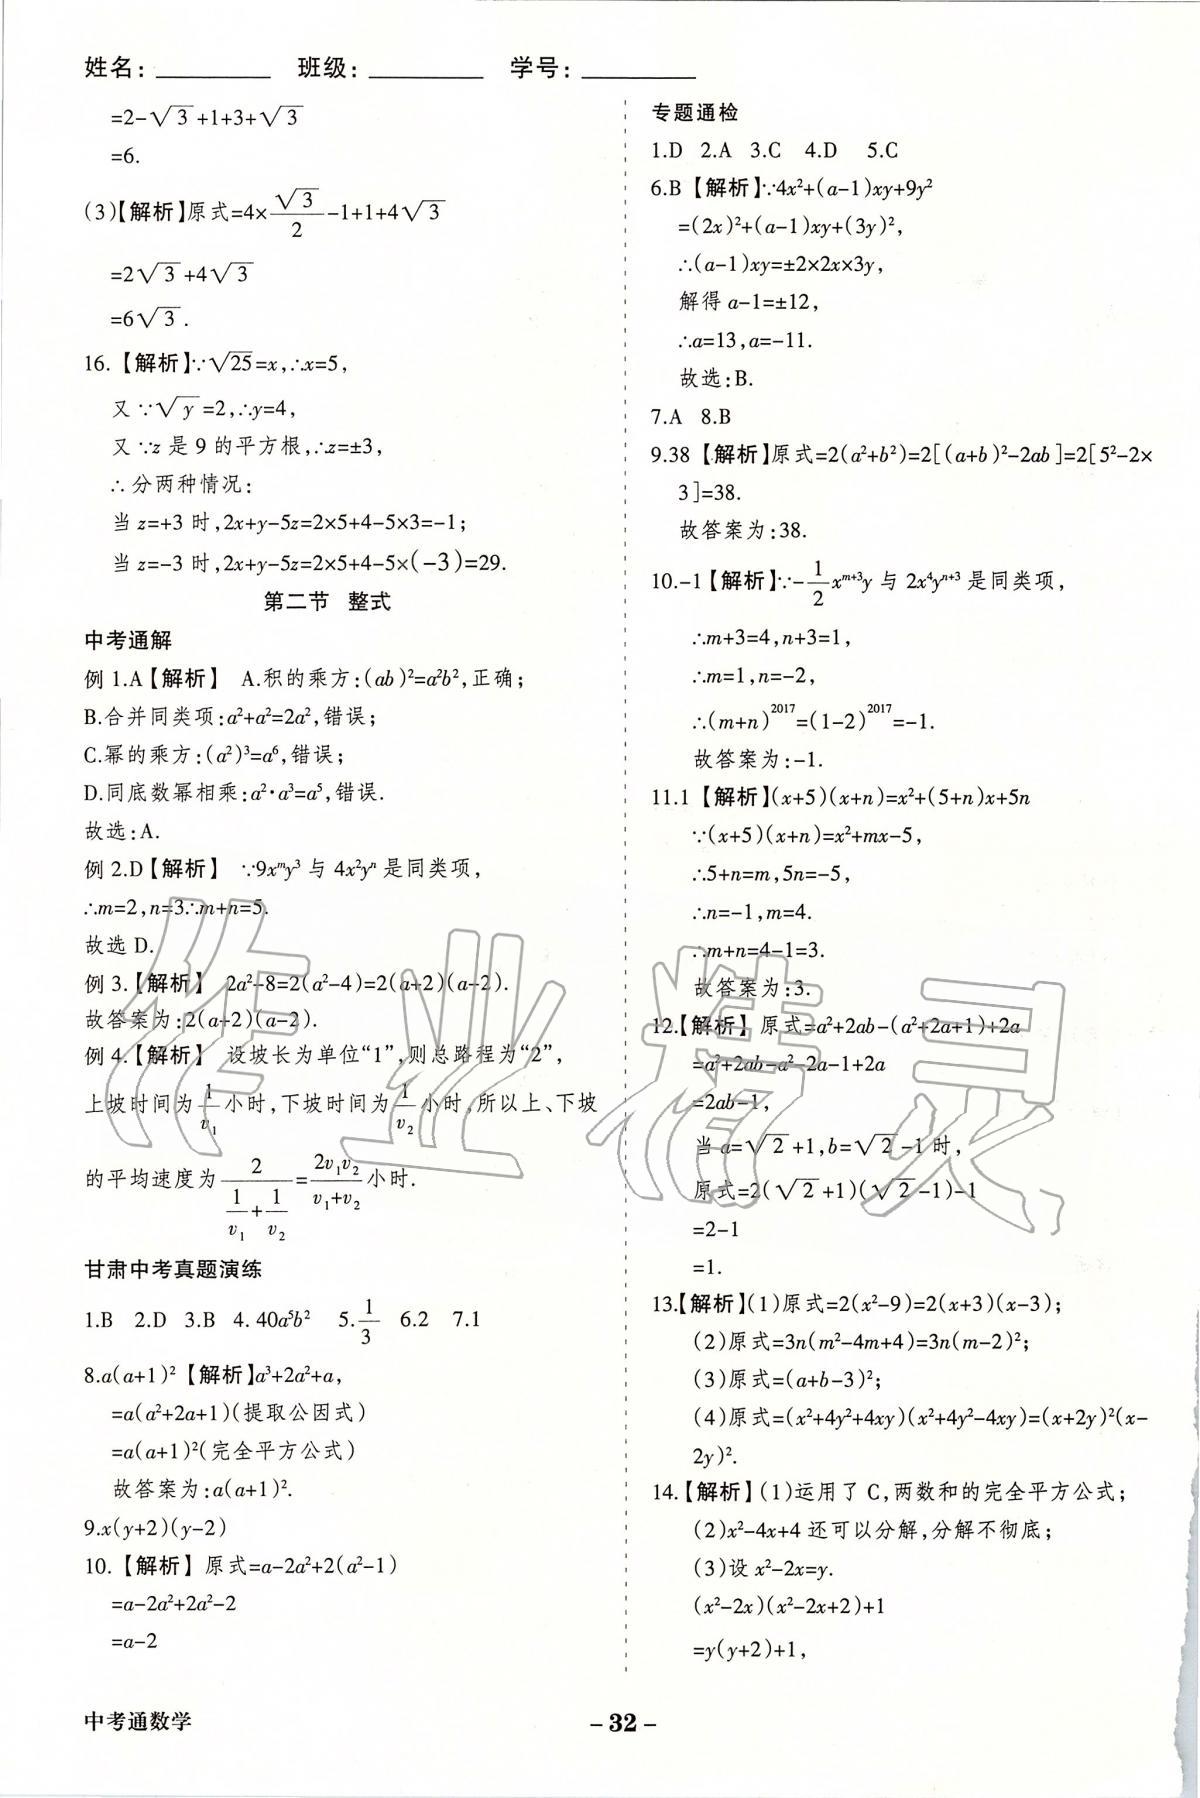 姓名：________ 班级：________ 学号：________
=2-√3+1+3+√3
=6.
(3)【解析】原式=4×√3/2-1+1+4√3
=2√3+4√3
=6√3.
16.【解析】∵√25=x,∴x=5,
又∵√y=2,∴y=4,
又∵z是9的平方根,∴z=±3,
∴分两种情况:
当z=+3时,2x+y-5z=2×5+4-5×3=-1;
当z=-3时,2x+y-5z=2×5+4-5×(-3)=29.
第二节 整式
中考通解
例1.A【解析】 A.积的乘方:(ab)²=a²b²,正确;
B.合并同类项:a²+a²=2a²,错误;
C.幂的乘方:(a²)³=a⁶,错误;
D.同底数幂相乘:a²·a³=a⁵,错误.
故选:A.
例2.D【解析】 ∵9xᵐy³与4x²yⁿ是同类项,
∴m=2,n=3∴m+n=5.
故选D.
例3.【解析】 2a²-8=2(a²-4)=2(a+2)(a-2).
故答案为:2(a+2)(a-2).
例4.【解析】 设坡长为单位“1”,则总路程为“2”,
上坡时间为1/v₁小时,下坡时间为1/v₂小时,所以上、下坡
的平均速度为2/(1/v₁+1/v₂)=2v₁v₂/(v₁+v₂)小时.
甘肃中考真题演练
1.B 2.D 3.B 4.40a⁵b² 5.1/3 6.2 7.1
8.a(a+1)²【解析】a³+2a²+a,
=a(a²+2a+1)(提取公因式)
=a(a+1)²(完全平方公式)
故答案为:a(a+1)².
9.x(y+2)(y-2)
10.【解析】原式=a-2a²+2(a²-1)
=a-2a²+2a²-2
=a-2
专题通检
1.D 2.A 3.C 4.D 5.C
6.B【解析】∵4x²+(a-1)xy+9y²
=(2x)²+(a-1)xy+(3y)²,
∴(a-1)xy=±2×2x×3y,
解得a-1=±12,
∴a=13,a=-11.
故选:B.
7.A 8.B
9.38【解析】原式=2(a²+b²)=2[(a+b)²-2ab]=2[5²-2×
3]=38.
故答案为:38.
10.-1【解析】∵-1/2xᵐ⁺³y与2x⁴yⁿ⁺³是同类项,
∴m+3=4,n+3=1,
∴m=1,n=-2,
∴(m+n)²⁰¹⁷=(1-2)²⁰¹⁷=-1.
故答案为:-1.
11.1【解析】(x+5)(x+n)=x²+(5+n)x+5n
∵(x+5)(x+n)=x²+mx-5,
∴5+n=m,5n=-5,
∴n=-1,m=4.
∴m+n=4-1=3.
故答案为:3.
12.【解析】原式=a²+2ab-(a²+2a+1)+2a
=a²+2ab-a²-2a-1+2a
=2ab-1,
当a=√2+1,b=√2-1时,
原式=2(√2+1)(√2-1)-1
=2-1
=1.
13.【解析】(1)原式=2(x²-9)=2(x+3)(x-3);
(2)原式=3n(m²-4m+4)=3n(m-2)²;
(3)原式=(a+b-3)²;
(4)原式=(x²+4y²+4xy)(x²+4y²-4xy)=(x+2y)²(x-
2y)².
14.【解析】(1)运用了C,两数和的完全平方公式;
(2)x²-4x+4还可以分解,分解不彻底;
(3)设x²-2x=y.
(x²-2x)(x²-2x+2)+1
=y(y+2)+1,
中考通数学
-32-
作业精灵